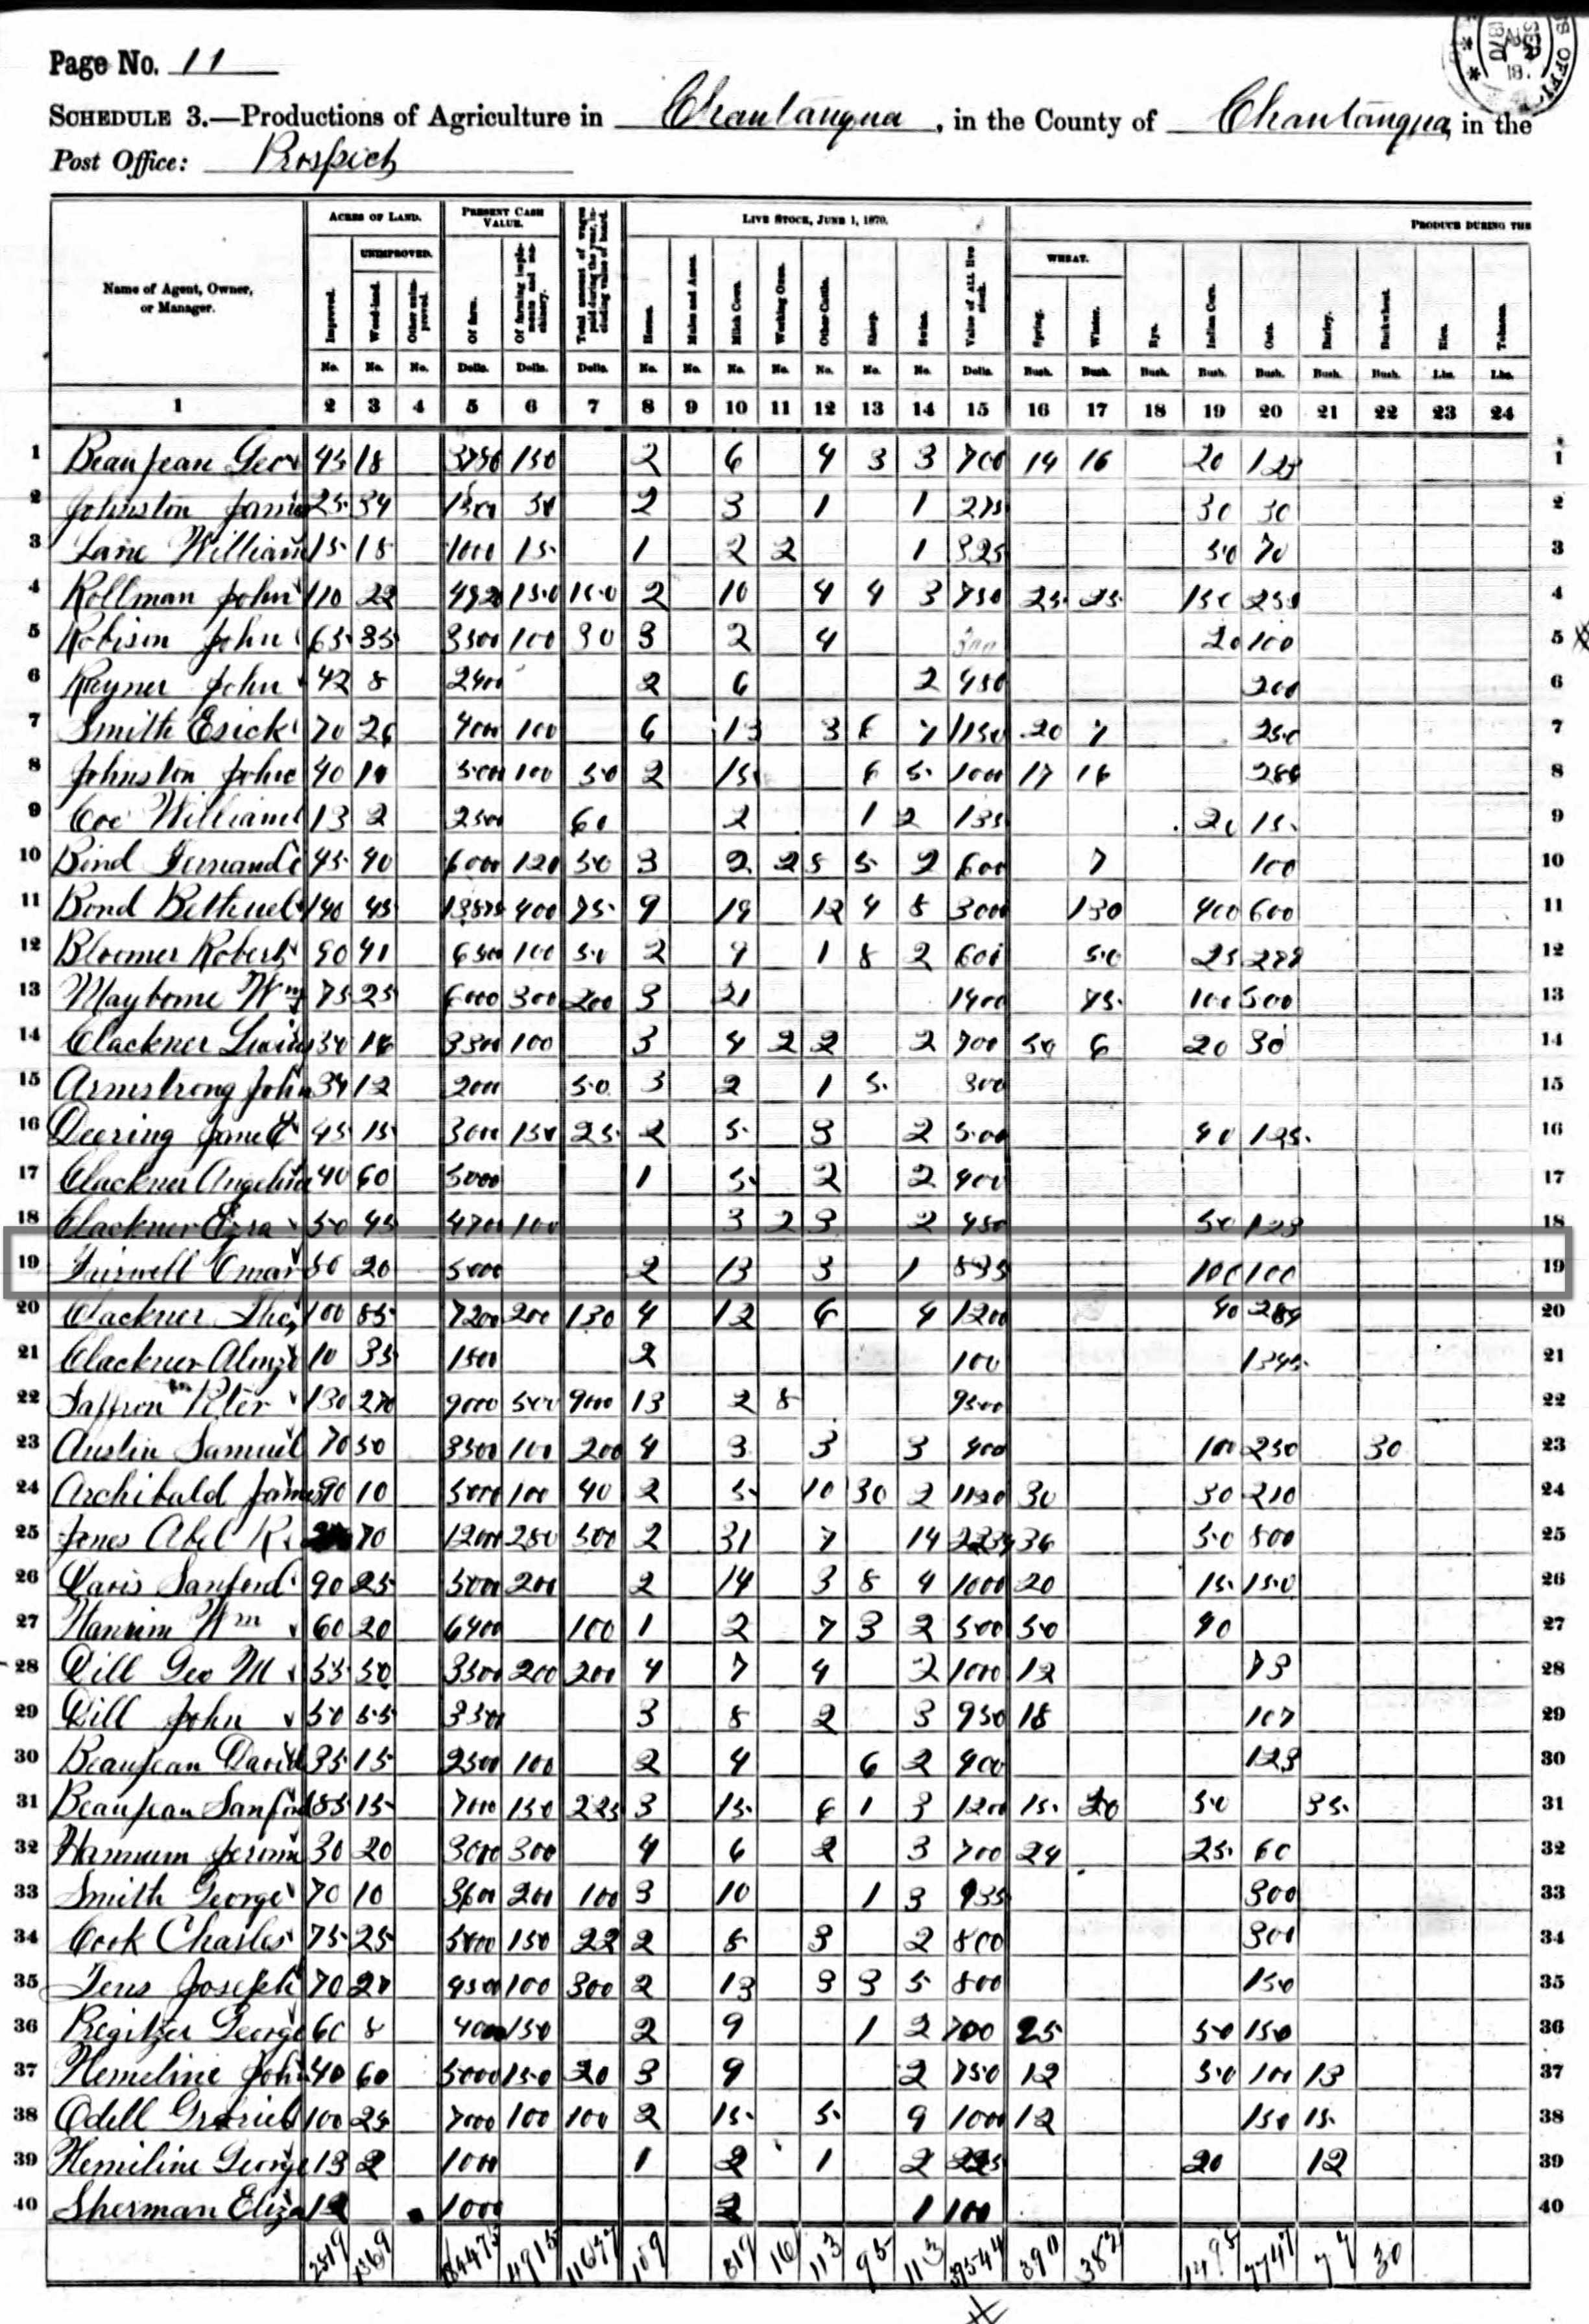 Page No. 11
SCHEDULE 3.—Productions of Agriculture in Chautauqua, in the County of Chautauqua, in the
Post Office:
ACRES OF LAND. PRESENT CASH VALUE. LIVE STOCK, JUNE 1, 1870. PRODUCE DURING THE
UNIMPROVED. WHEAT.
Name of Agent, Owner, or Manager. Improved. Wood-land. Other unimproved. Of farm. Of farming implements and machinery. Total amount of wages paid during the year, including value of board. Horses. Mules and Asses. Milch Cows. Working Oxen. Other Cattle. Sheep. Swine. Value of ALL live stock. Spring. Winter. Rye. Indian Corn. Oats. Barley. Buckwheat. Rice. Tobacco.
No. No. No. Dolls. Dolls. Dolls. No. No. No. No. No. No. No. Dolls. Bush. Bush. Bush. Bush. Bush. Bush. Bush. Lbs. Lbs.
1 2 3 4 5 6 7 8 9 10 11 12 13 14 15 16 17 18 19 20 21 22 23 24
1 Beaujean Geo 45 18 3750 150 2 6 4 3 3 700 14 16 20 123 1
2 Johnston 25 34 2 3 1 1 275 30 30 2
3 Lane William 15 18 1000 15 1 2 2 1 325 50 70 3
4 Kollman John 110 22 150 150 2 10 4 4 3 750 25 25 150 250 4
5 Robison John 65 35 3500 100 30 3 2 4 300 20 100 5
6 Rayner John 42 8 2400 2 6 2 450 200 6
7 Smith Esick 70 26 4000 100 6 13 3 6 7 1150 20 7 250 7
8 Johnston John 40 10 5000 100 50 2 15 6 5 1000 17 16 8
9 Coe William 13 2 2500 60 2 1 2 135 20 15 9
10 Bond 45 40 6000 120 50 3 2 2 8 5 2 600 7 100 10
11 Bond Bethuel 140 45 400 75 9 19 12 4 8 3000 130 400 600 11
12 Bloomer Robert 90 41 6500 100 50 2 9 1 8 2 600 50 25 12
13 Mayborne Wm 75 25 6000 300 200 3 21 1400 75 100 500 13
14 Clackner 30 16 3300 100 3 4 2 2 2 700 50 6 20 30 14
15 Armstrong John 34 12 2000 50 3 2 1 5 300 15
16 Deering 45 15 3000 150 25 2 5 3 2 500 40 125 16
17 Clackner Angeline 40 60 5000 1 5 2 2 400 17
18 Clackner Ezra 50 45 4700 100 3 2 3 2 450 50 123 18
19 Omar 80 20 5000 2 13 3 1 835 100 100 19
20 Clackner Thos 100 85 7200 200 130 4 12 6 4 1200 40 284 20
21 Clackner Alonzo 10 35 1500 2 100 1345 21
22 Peter 130 9000 500 9000 13 2 8 9500 22
23 Austin Samuel 70 50 3500 100 200 4 3 3 3 400 100 250 30 23
24 Archibald James 90 10 5000 100 40 2 5 10 30 2 1120 30 30 210 24
25 Jones Abel R 70 12000 250 500 2 31 7 14 36 50 800 25
26 Davis Sanford 90 25 5000 200 2 14 3 8 4 1000 20 15 150 26
27 Wm 60 20 6400 100 1 2 7 3 2 500 50 40 27
28 Dill Geo M 55 50 3500 200 200 4 7 4 2 1000 12 73 28
29 Dill John 50 55 3500 3 8 2 3 950 18 107 29
30 Beaujean David 35 15 2500 100 2 4 6 2 400 123 30
31 Beaujean Sanford 85 15 7000 150 225 3 15 6 1 3 1200 15 20 50 35 31
32 Hannum 30 20 3000 300 4 6 2 3 700 24 25 60 32
33 Smith George 70 10 3600 200 100 3 10 1 3 935 300 33
34 Cook Charles 75 25 5000 150 22 2 8 3 2 800 300 34
35 Tens Joseph 70 20 4500 100 300 2 13 3 3 5 800 150 35
36 Regitzer George 60 8 4000 150 2 9 1 2 700 25 50 150 36
37 Hemeline John 40 60 5000 150 20 3 9 2 750 12 50 100 13 37
38 Odell 100 25 7000 100 100 2 15 5 9 1000 12 150 15 38
39 Hemiline George 13 2 1000 1 2 1 2 225 20 12 39
40 Sherman Eliza 12 1000 2 1 100 40
2519 1369 4915 109 319 16 113 95 113 390 382 1495 7747 30